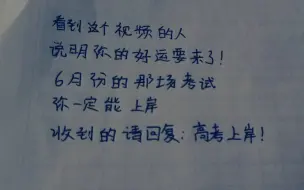 看到这个视频的人
说明你的好运要来了!
6月份的那场考试
你一定能上岸
收到的请回复:高考上岸!